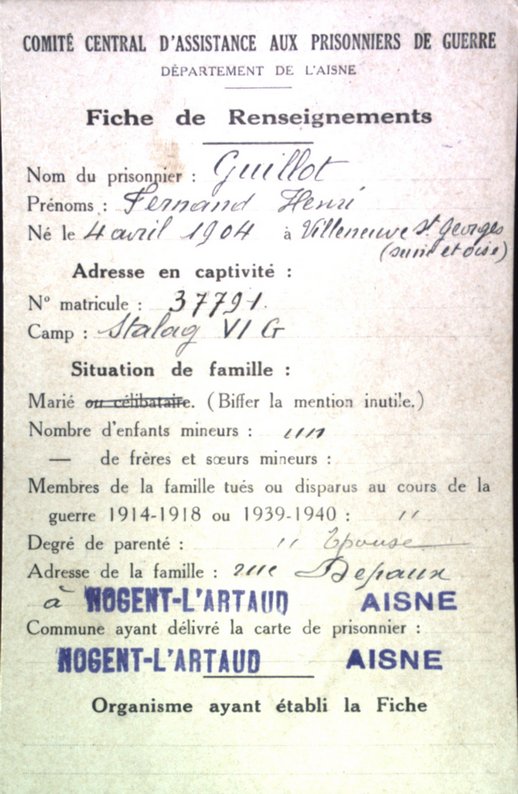 COMITÉ CENTRAL D'ASSISTANCE AUX PRISONNIERS DE GUERRE
DÉPARTEMENT DE L'AISNE
Fiche de Renseignements
Nom du prisonnier : Guillot
Prénoms : Fernand Henri
Né le 4 avril 1904 à Villeneuve St Georges
(seine et oise)
Adresse en captivité :
N° matricule : 37791
Camp : Stalag VI G
Situation de famille :
Marié ou célibataire. (Biffer la mention inutile.)
Nombre d'enfants mineurs : un
— de frères et sœurs mineurs :
Membres de la famille tués ou disparus au cours de la
guerre 1914-1918 ou 1939-1940 : "
Degré de parenté : " Épouse
Adresse de la famille : rue Depaux
à NOGENT-L'ARTAUD AISNE
Commune ayant délivré la carte de prisonnier :
NOGENT-L'ARTAUD AISNE
Organisme ayant établi la Fiche